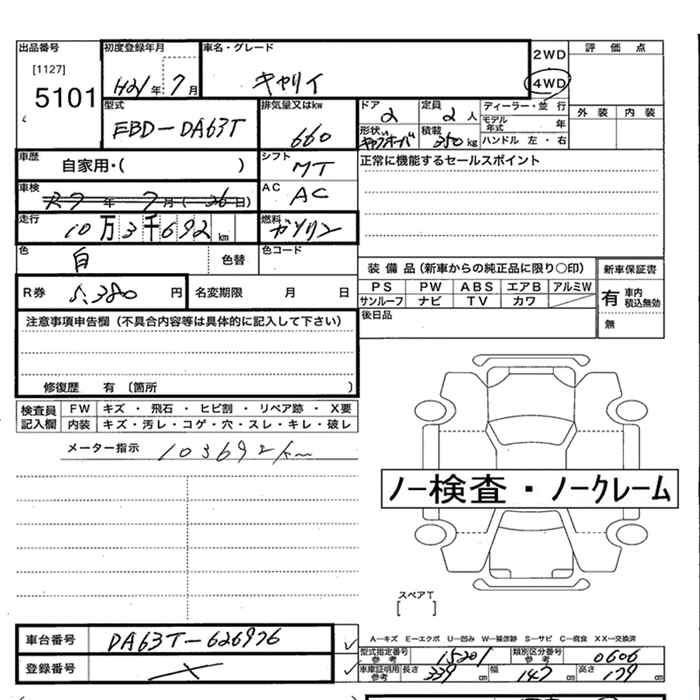 出品番号
[1127]
5101
初度登録年月
H21年7月
車名・グレード
キャリイ
2WD
4WD
評価点
外装 内装
型式
EBD-DA63T
排気量又はkw
660
ドア
2
定員
2人
ディーラー・並行
モデル年式 年
形状
積載
350kg
ハンドル 左・右
車歴
自家用・( )
シフト
MT
正常に機能するセールスポイント
車検
R7年7月(26日)
AC
AC
走行
10万3千692km
燃料
ガソリン
色
白
色替
色コード
装備品(新車からの純正品に限り〇印)
新車保証書
PS PW ABS エアB アルミW
サンルーフ ナビ TV カワ
有 車内積込無効
無
R券
5,380円
名変期限 月 日
後日品
注意事項申告欄(不具合内容等は具体的に記入して下さい)
修復歴 有 〔箇所 )
検査員記入欄
FW キズ・飛石・ヒビ割・リペア跡・X要
内装 キズ・汚レ・コゲ・穴・スレ・キレ・破レ
メーター指示 103692km
ノー検査・ノークレーム
スペアT
[ ]
車台番号
DA63T-626976
登録番号
A―キズ E―エクボ U―凹み W―補修跡 S―サビ C―腐食 XX―交換済
型式指定番号参考 15201
類別区分番号参考 0606
車庫証明用参考 長さ 339cm 幅 147cm 高さ 179cm